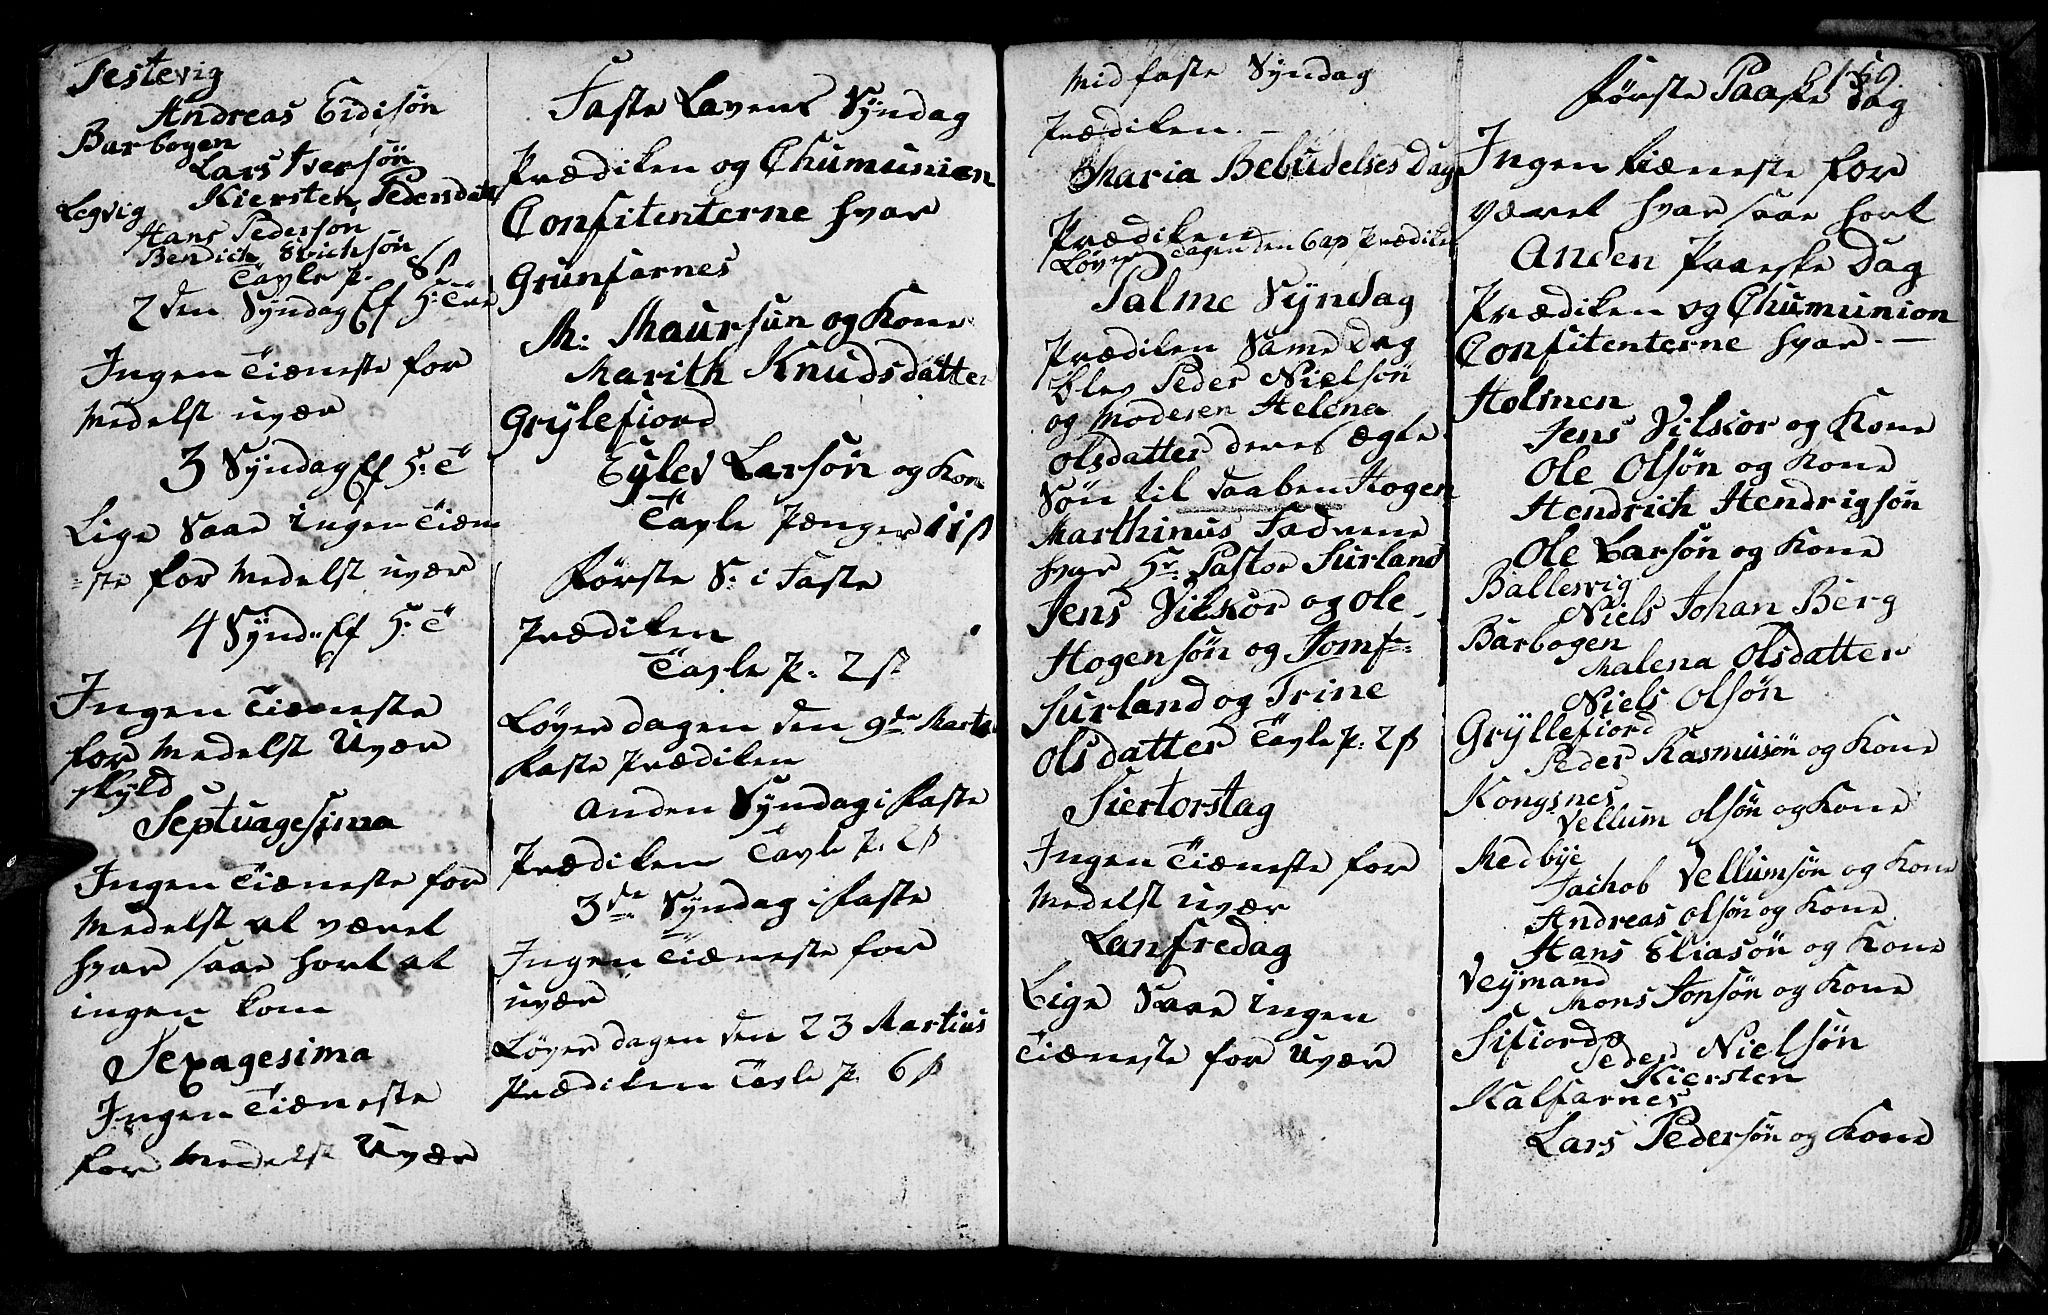 Testevig
Andreas Eidisøn
Barbogen
Lars Iversøn
Kiersten Pedersdatt
Legvig
Hans Pedersøn
Bendich Erichsøn
Tavle P. 8 ß
2den Syndag Ef H: Tre
Ingen Tiæneste for
Medelst uvær
3 Syndag Ef H: T
Lige Saae ingen Tiæn
=ste for Medelst uvær
4 Synd: Ef H: T
Ingen Tiæneste
for Medelst Uvær
skyld
Septuagesima
Ingen Tiæneste for
Medelst at været
hvar saae hort at
ingen kom
Sexagesima
Ingen Tiæneste
for Medelst Uvær
Faste Lavens Syndag
Prædiken og Chumunion
Confitenterne hvar
Grunfarnes
M: Maursun og Kone
Marith Knudsdatter
Grylefiord
Eylev Larsøn og Kon
Tavle Pænger 11 ß
Første S: i Faste
Prædiken
Tavle P: 2 ß
Løverdagen den 9de Martz
faste Prædiken
Anden Syndag i faste
Prædiken Tavle P: 2 ß
3de Syndag i faste
Ingen Tiæneste for
uvær
Løverdagen den 23 Martius
Prædiken Tavle P. 6 ß
Midfaste Syndag
Prædiken. —
Maria Bebudelses Dag
Prædiken
Løver Dagen den 6 ap Prædiken
Palme Syndag
Prædiken Same Dag
blev Peder Nielsøn
og Moderen Helena
Olsdatter deres Ægte
Søn til daaben Hogen
Marthinus Fadrene
hvar Hr. Pastor Surland
Jens Vilskor og Ole
Hogensøn og Jomf:
Surland og Trine
Olsdatter Tavle P: 2 ß
Siertorstag
Ingen Tiæneste for
Medelst uvær
Lanfredag
Lige Saae ingen
Tiæneste for Uvær
159
Første Paaske Dag
Ingen tiæneste for
været hvar saae hort
Anden Paaske Dag
Prædiken og Chumunion
Confitenterne hvar. —
Holmen
Jens Vilskor og Kone
Ole Olsøn og Kone
Hendrich Hendrigsøn
Ole Larsøn og Kone
Ballesvig
Niels Johan Berg
Barbogen
Malena Olsdatter
Niels Olsøn
Gryllefiord
Peder Rasmusøn og Kone
Kongsnes
Vellum Olsøn og Kone
Medbye
Jachob Vellumsøn og Kone
Andreas Olsøn og Kone
Hans Eliasøn og Kone
Veymand
Mons Jonsøn og Kone
Sifiord
Peder Nielsøn
Kiersten
Kalfarnes
Lars Pedersøn og Kone